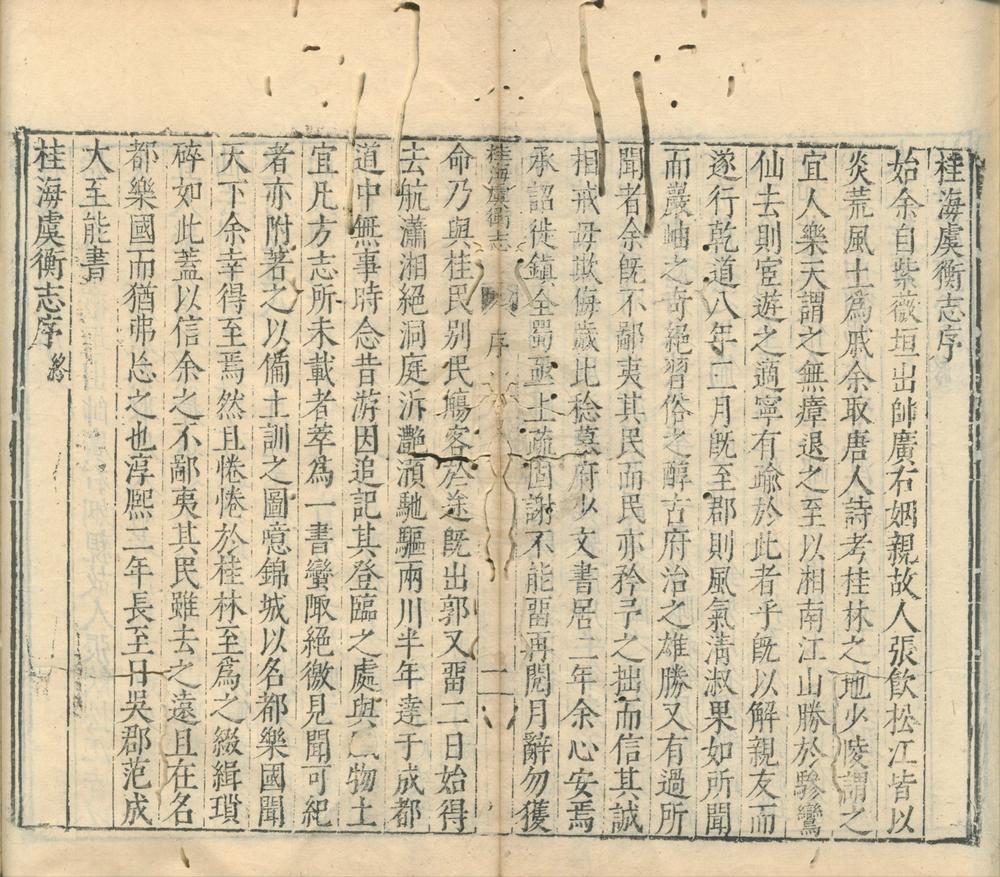 桂海虞衡志序
始余自紫薇垣出帥廣右姻親故人張飲松江皆以
炎荒風土爲戚余取唐人詩考桂林之地少陵謂之
宜人樂天謂之無瘴退之至以湘南江山勝於驂鸞
仙去則宦遊之適寧有踰於此者乎旣以解親友而
遂行乾道八年三月旣至郡則風氣清淑果如所聞
而巖岫之奇絕習俗之醇古府治之雄勝又有過所
聞者余旣不鄙夷其民而民亦矜予之拙而信其誠
相戒毋欺侮歲比稔幕府少文書居二年余心安焉
承詔徙鎮全蜀亟上疏固謝不能畱再閱月辭勿獲
桂海虞衡志 序 一
命乃與桂民别民觴客於途旣出郭又畱二日始得
去航瀟湘絕洞庭泝灩澦馳驅兩川半年達于成都
道中無事時念昔游因追記其登臨之處與物土
宜凡方志所未載者萃爲一書蠻陬絕徼見聞可紀
者亦附著之以備土訓之圖噫錦城以名都樂國聞
天下余幸得至焉然且惓惓於桂林至爲之綴緝瑣
碎如此蓋以信余之不鄙夷其民雖去之遠且在名
都樂國而猶弗忘之也淳熙二年長至日吳郡范成
大至能書
桂海虞衡志序終